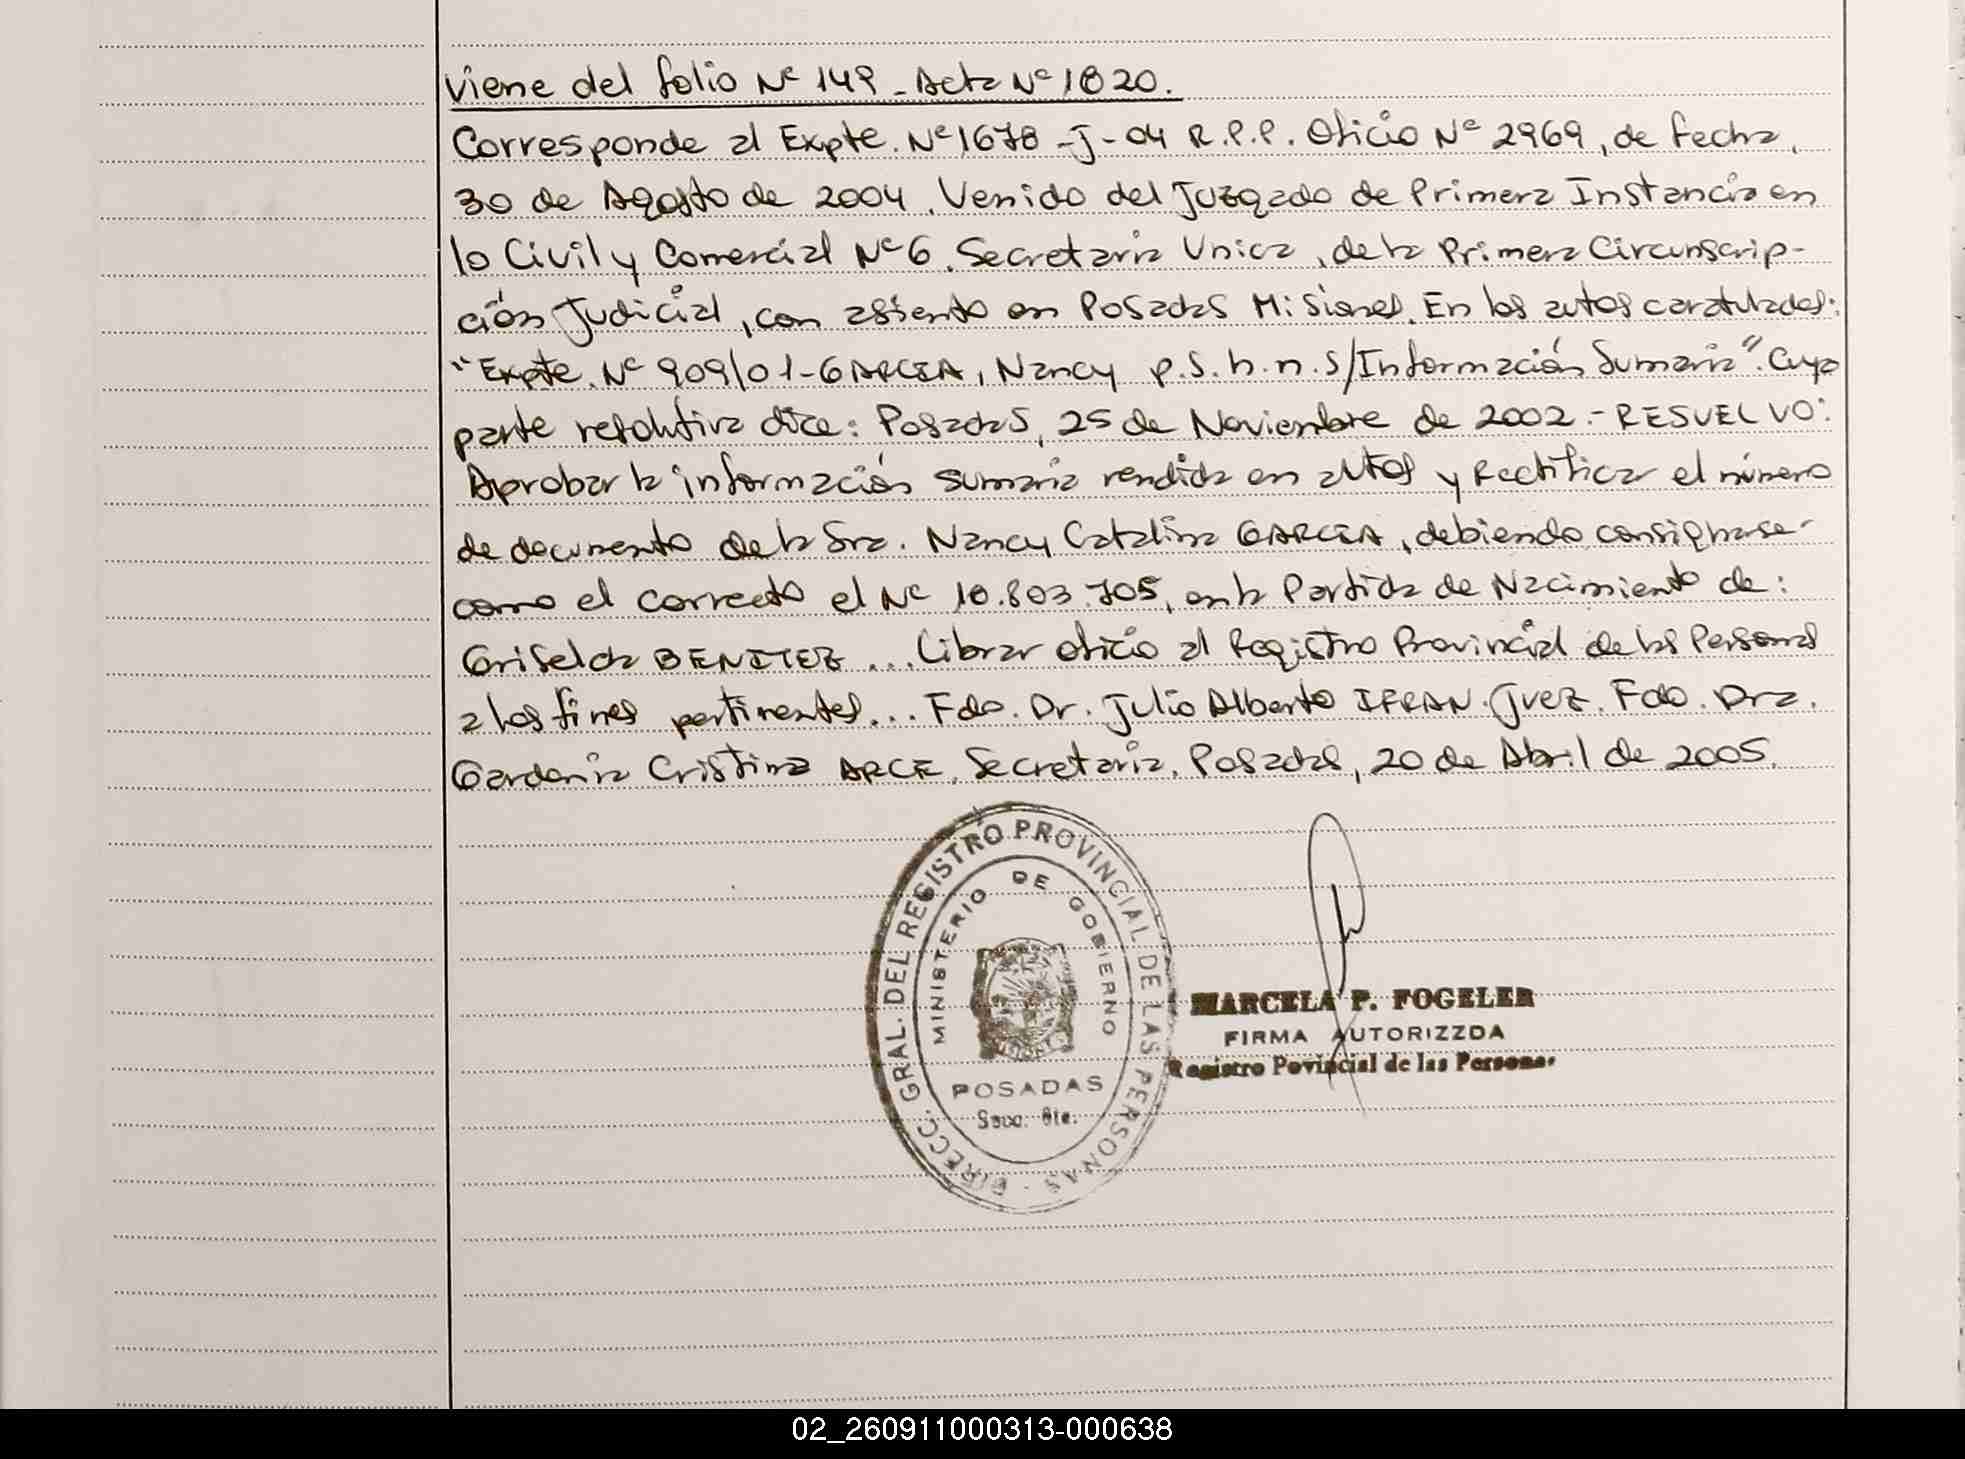 Viene del folio Nº 149 - Acta Nº 1820.
Corresponde al Expte. Nº 1678 - J - 04 R.P.P. Oficio Nº 2969, de fecha,
30 de Agosto de 2004. Venido del Juzgado de Primera Instancia en
lo Civil y Comercial Nº 6. Secretaria Unica, de la Primera Circunscrip-
ción Judicial, con asiento en Posadas Misiones. En los autos caratulados:
"Expte. Nº 909/01 - GARCIA, Nancy p.s.h.n. s/Información Sumaria". Cuya
parte resolutiva dice: Posadas, 25 de Noviembre de 2002.- RESUELVO:
Aprobar la información sumaria rendida en autos y Rectificar el número
de documento de la Sra. Nancy Catalina GARCIA, debiendo consignarse
como el correcto el Nº 10.803.705, en la Partida de Nacimiento de:
Griselda BENITEZ ... Librar oficio al Registro Provincial de las Personas
a los fines pertinentes... Fdo. Dr. Julio Alberto IFRAN. Juez. Fdo. Dra.
Gardenia Cristina ARCE. Secretaria. Posadas, 20 de Abril de 2005.
DIRECC. GRAL. DEL REGISTRO PROVINCIAL DE LAS PERSONAS
MINISTERIO DE GOBIERNO
POSADAS
MARCELA P. FOGELER
FIRMA AUTORIZZDA
Registro Povincial de las Personas
02_260911000313-000638